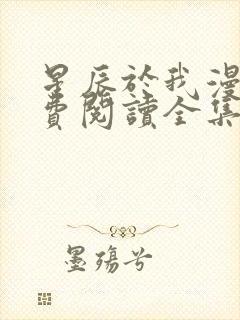 星辰於我漫
費閱讀全集
墨殤兮